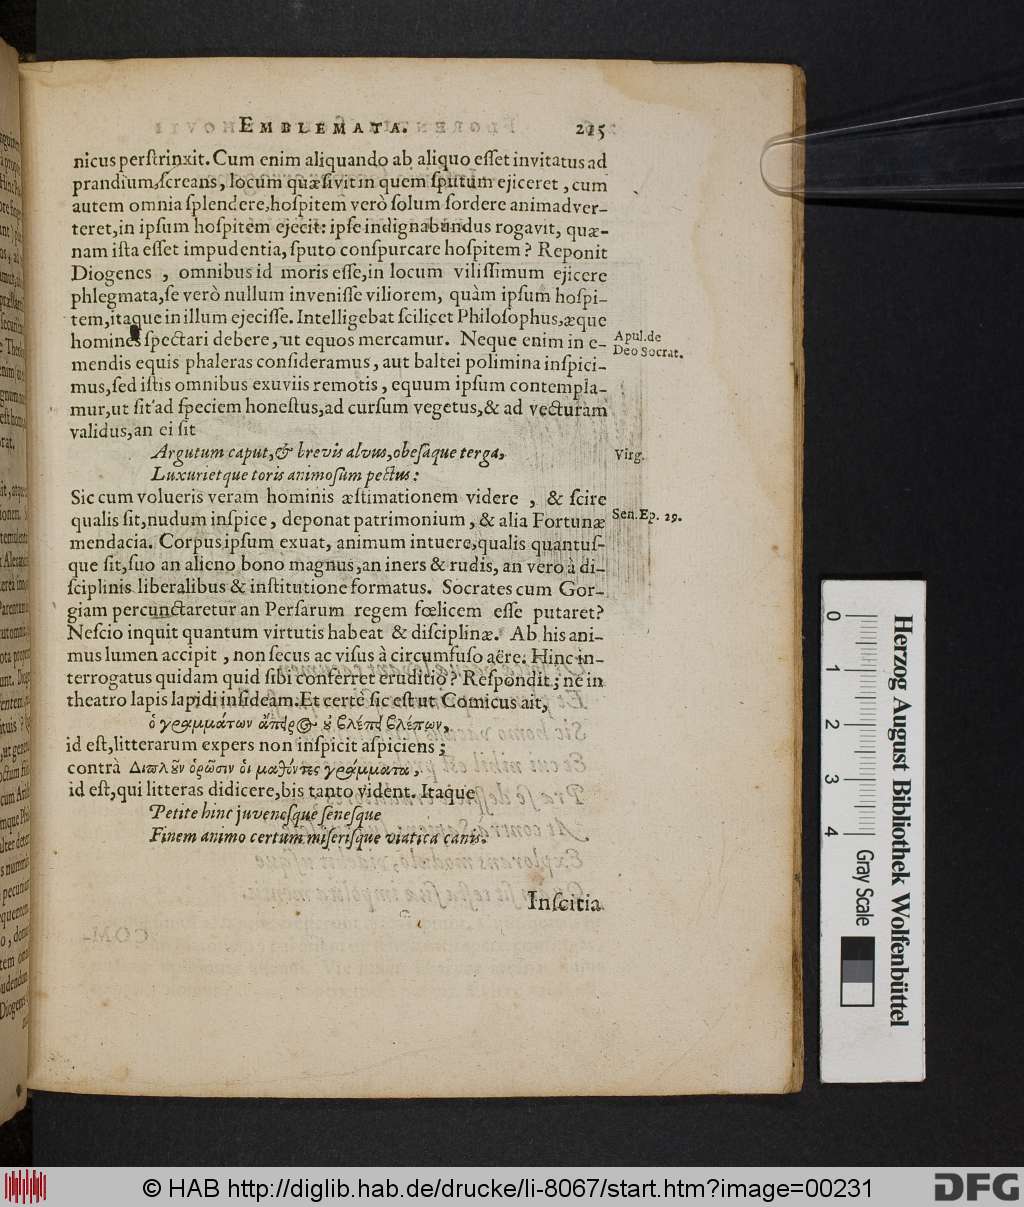 EMBLEMATA. 215
nicus perſtrinxit. Cum enim aliquando ab aliquo eſſet invitatus ad
prandium, ſcreans, locum quæſivit in quem ſputum ejiceret, cum
autem omnia ſplendere, hoſpitem verò ſolum ſordere animadver-
teret, in ipſum hoſpitem ejecit: ipſe indignabundus rogavit, quæ-
nam iſta eſſet impudentia, ſputo conſpurcare hoſpitem? Reponit
Diogenes, omnibus id moris eſſe, in locum viliſſimum ejicere
phlegmata, ſe verò nullum inveniſſe viliorem, quàm ipſum hoſpi-
tem, itaque in illum ejeciſſe. Intelligebat ſcilicet Philoſophus, æque
homines ſpectari debere, ut equos mercamur. Neque enim in e-
Apul. de
Deo Socrat.
mendis equis phaleras conſideramus, aut baltei polimina inſpici-
mus, ſed iſtis omnibus exuviis remotis, equum ipſum contempla-
mur, ut ſit ad ſpeciem honeſtus, ad curſum vegetus, & ad vecturam
validus, an ei ſit
Argutum caput, & brevis alvus, obeſaque terga,
Virg.
Luxurietque toris animoſum pectus:
Sic cum volueris veram hominis æſtimationem videre, & ſcire
qualis ſit, nudum inſpice, deponat patrimonium, & alia Fortunæ
Sen. Ep. 29.
mendacia. Corpus ipſum exuat, animum intuere, qualis quantuſ-
que ſit, ſuo an alieno bono magnus, an iners & rudis, an vero à di-
ſciplinis liberalibus & inſtitutione formatus. Socrates cum Gor-
giam percunctaretur an Perſarum regem fœlicem eſſe putaret?
Neſcio inquit quantum virtutis habeat & diſciplinæ. Ab his ani-
mus lumen accipit, non ſecus ac viſus à circumfuſo aëre. Hinc in-
terrogatus quidam quid ſibi conferret eruditio? Reſpondit; ne in
theatro lapis lapidi inſideam. Et certè ſic eſt ut Comicus ait,
ὁ γραμμάτων ἄπειρος οὐ βλέπει βλέπων,
id eſt, litterarum expers non inſpicit aſpiciens;
contrà Διπλοῦν ὁρῶσιν οἱ μαθόντες γράμματα,
id eſt, qui litteras didicere, bis tanto vident. Itaque
Petite hinc juvenesque ſenesque
Finem animo certum miſerisque viatica canis.
Inſcitia
Herzog August Bibliothek Wolfenbüttel
0 1 2 3 4
Gray Scale
© HAB http://diglib.hab.de/drucke/li-8067/start.htm?image=00231
DFG